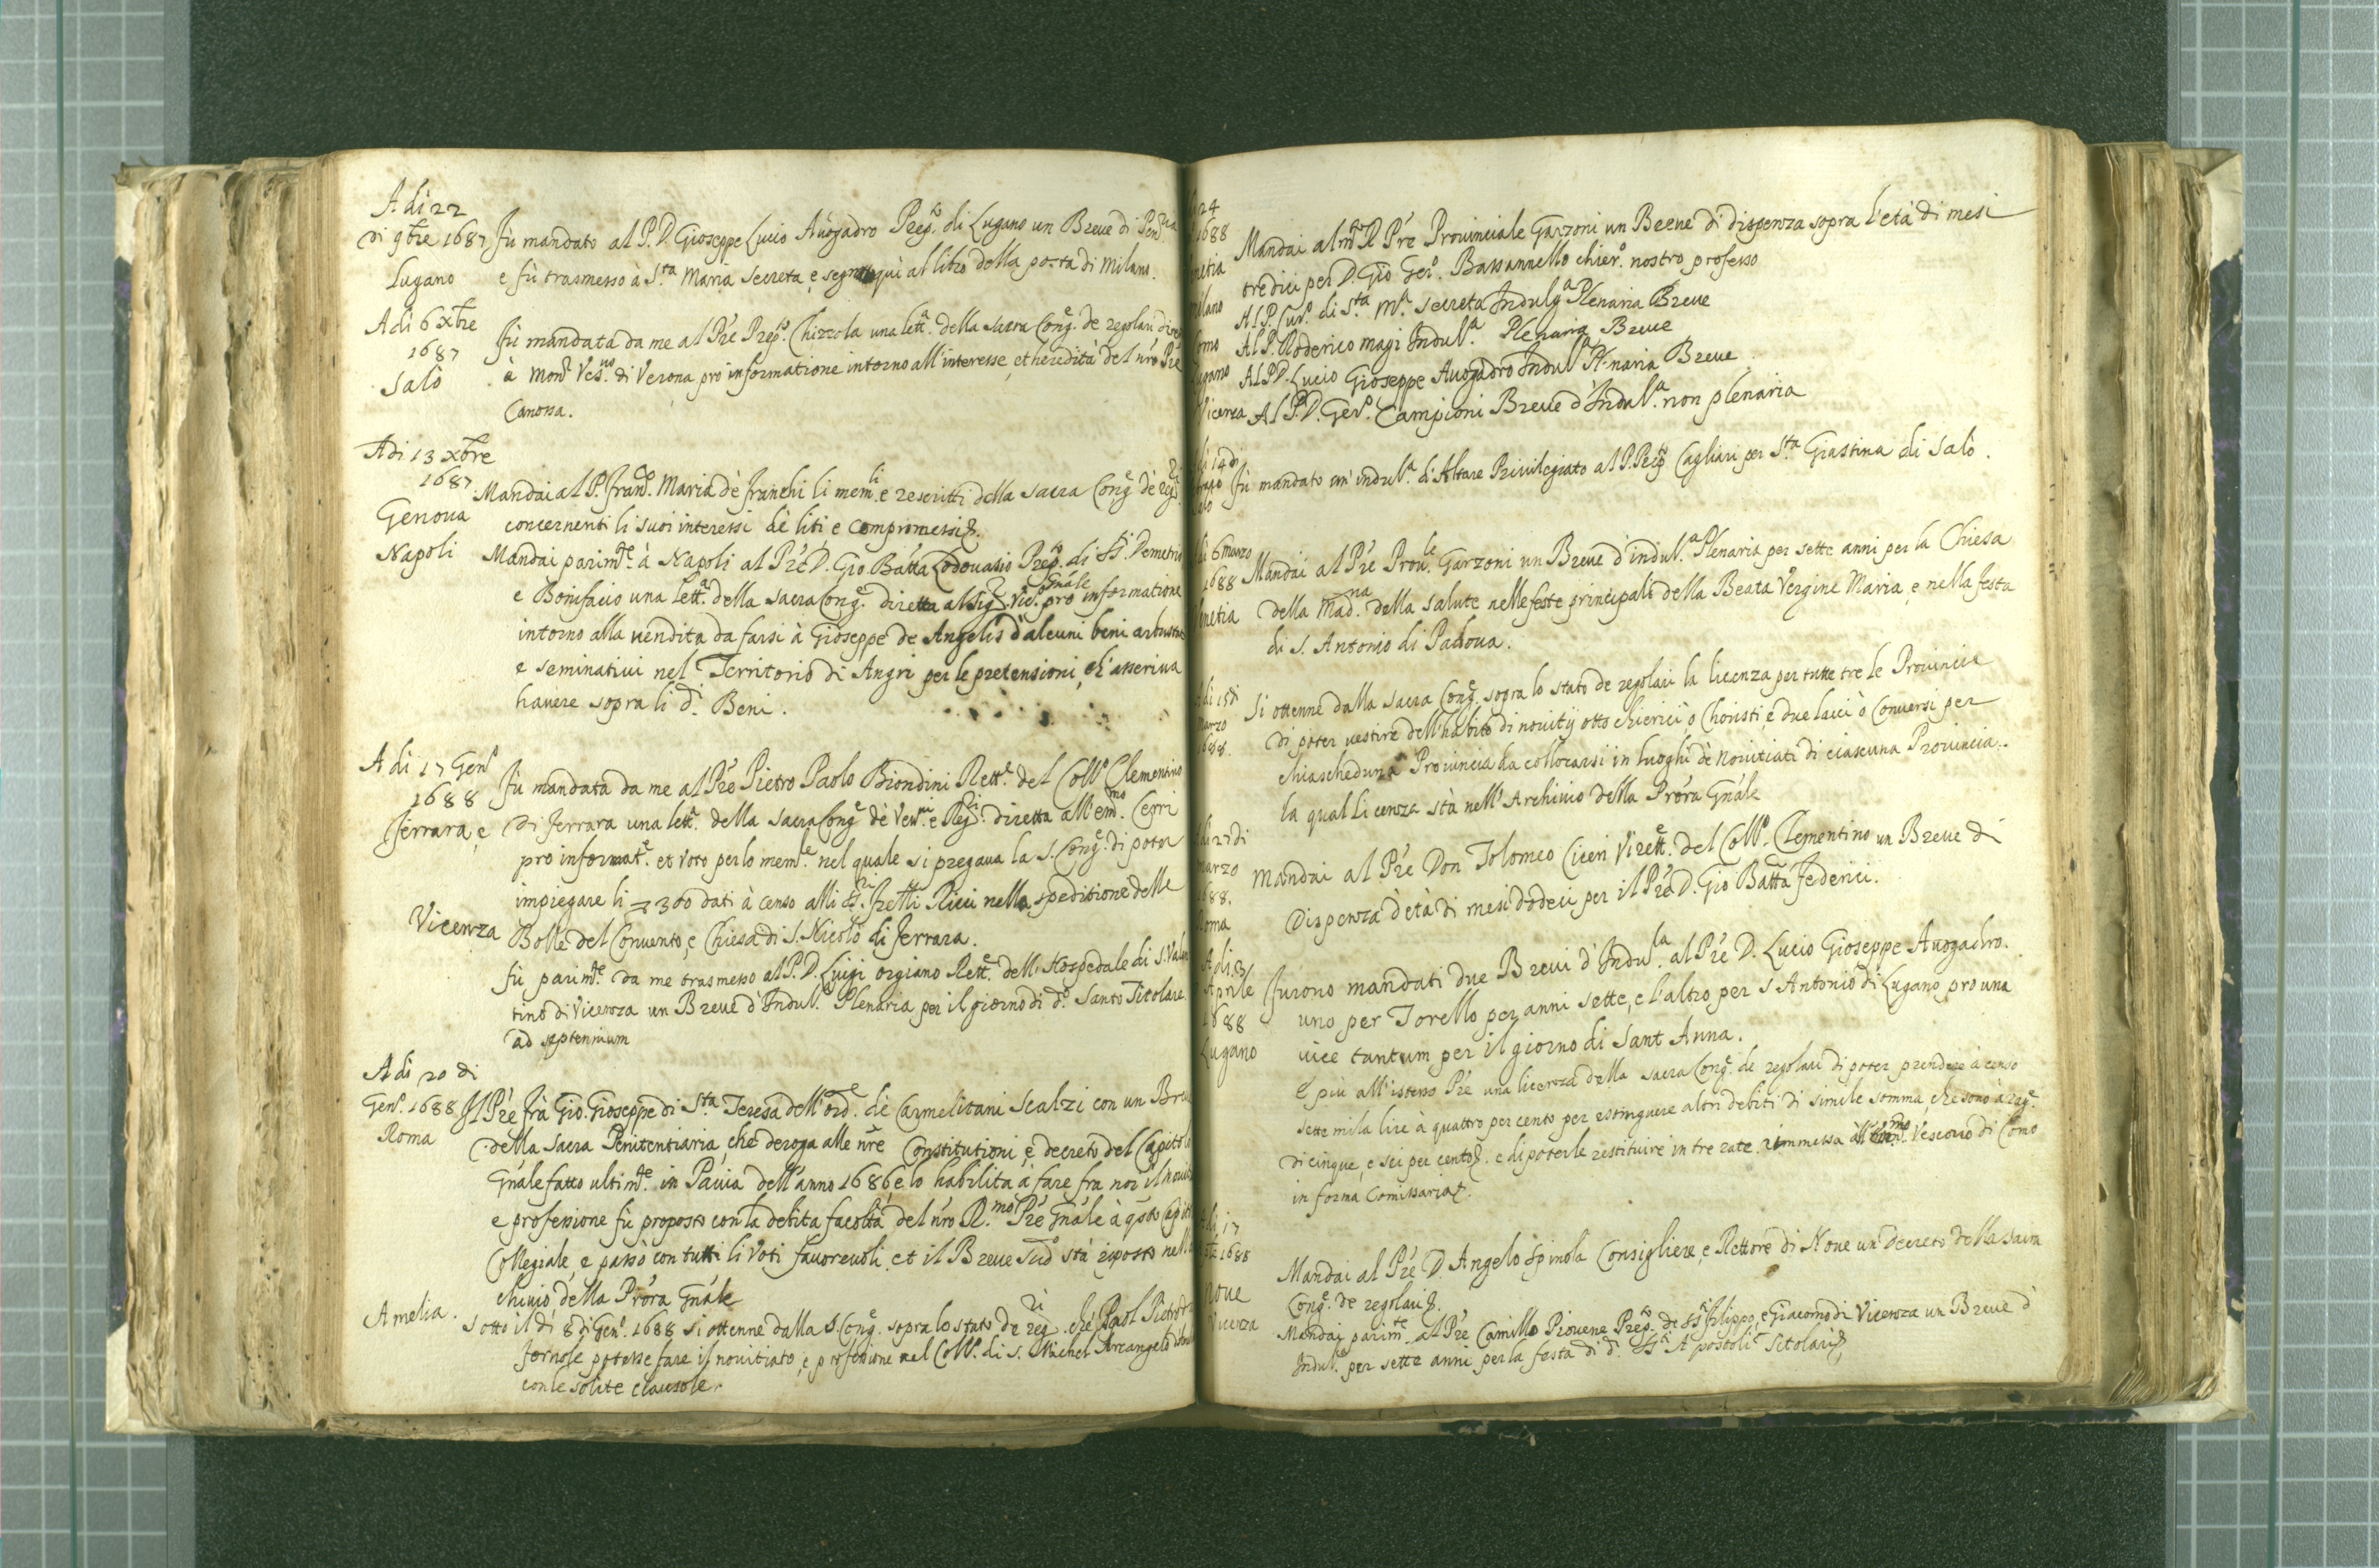 A di 22
di 9bre 1687
Lugano
Fù mandato al P. D. Gioseppe Lucio Auogadro Prepto. di Lugano un Breue di Penria
e fù trasmesso à Sta. Maria Secreta, e segnato quì al libro della posta di Milano.
A di 6 Xbre
1687
Salò
Fù mandata da me al Pre Prepto. Chizzola una letta. della Sacra Conge. de regolari
à Monr. Vesuo. di Verona pro informatione intorno all'interesse, et heredità del nro Pre
Canossa.
A di 13 Xbre
1687
Genoua
Mandai al P. Franco. Maria dè Franchi li memli. e rescritti della Sacra Conge. dè regri.
concernenti li suoi interessi dè liti, e compromessi &.
Napoli
Mandai parimte. à Napoli al Pre D. Gio. Batta Lodouasio Prepto. di SSti. Demetrio
e Bonifacio una letta. della Sacra Conge. diretta al Sigr. Vico. Gnale pro informatione
intorno alla uendita da farsi à Gioseppe de Angelis d'alcuni beni
e seminatiui nel Territorio di Angri per le pretensioni, ch'asseriua
hauere sopra li di. Beni.
A di 17 Geno.
1688
Ferrara, e
Fù mandata da me al Pre Pietro Paolo Biondini Rette. del Collo. Clementino
di Ferrara una letta. della Sacra Conge. dè Vesui. e Regri. diretta all'emmo. Cerri
pro informate. et voto per lo meme. nel quale si pregaua la S. Conge. di poter
impiegare li 300 dati à censo alli SSri. fratelli Ricci nella speditione delle
Bolle del Conuento, e Chiesa di S. Nicolò di Ferrara.
Vicenza
Fù parimte. da me trasmesso al P. D. Luigi Orgiano Rette. dell'Hospedale di S. Valen
tino di Vicenza un Breue d'Indula. Plenaria per il giorno di do. Santo Titolare
ad septennium
A di 20 di
Geno. 1688
Roma
Il Pre frà Gio. Gioseppe di Sta. Teresa dell'orde. dè Carmelitani Scalzi con un Breue
della Sacra Penitentiaria, che deroga alle nre Constitutioni, e decreto del Capitolo
Gnale fatto ultimte. in Pauia dell'anno 1686, e lo habilita à fare fra noi il noui
e professione fù proposto con la debita facoltà del nro Rmo. Pre Gnale à qsto Capit
Collegiale, e passò con tutti li Voti fauoreuoli, et il Breue sudo. stà riposto nell
chiuio della Prora Gnale
Amelia.
Sotto il dì 8 di Geno. 1688 si ottenne dalla S. Conge. sopra lo stato de regri. che Paol Pietro
Fornole potesse fare il nouitiato, e professione nel Collo. di S. Michel Arcangelo
con le solite clausole.
24
1688
netia
Mandai al mto. R. Pre Prouinciale Garzoni un Breue di dispenza sopra l'età di mesi
tredici per D. Gio Gero. Bassannello chiero. nostro professo
milano
Al P. Curo. di Sta. Ma. Secreta Indulga. Plenaria Breue
omo
Al P. Roderico Magi Indula. Plenaria Breue
Lugano
Al P. D. Lucio Gioseppe Auogadro Indula. Plenaria Breue
Vicenza
Al P. D. Gero. Campioni Breue d'Indula. non plenaria
di 14 di
Fù mandato un'indula. d'Altare Priuilegiato al P. Prepto. Cagliari per Sta. Giustina di Salò.
di 6 marzo
1688
enetia
Mandai al Pre Proule. Garzoni un Breue d'indula. Plenaria per sette anni per la Chiesa
della Madna. della Salute nelle feste principali della Beata Vergine Maria, e nella festa
di S. Antonio di Padoua.
A di 15 di
Marzo
1688.
Si ottenne dalla Sacra Conge. sopra lo stato de regolari la licenza per tutte tre le Prouincie
di poter uestire dell'habito di nouitij otto chierici ò Choristi e due laici ò Conuersi per
chiascheduna Prouincia da collocarsi in luoghi dè Nouitiati di ciascuna Prouincia..
la qual licenza stà nell'Archiuio della Prora Gnale
A di 27 di
marzo
1688.
Roma
Mandai al Pre Don Tolomeo Ciceri Virette. del Collo. Clementino un Breue di
Dispenza d'età di mesi dodeci per il Pre D. Gio Batta Federici.
A di 3
Aprile
1688
Lugano
Furono mandati due Breui d'Indulla. al Pre D. Lucio Gioseppe Auogadro.
uno per Torello per anni sette, e l'altro per S Antonio di Lugano pro una
uice tantum per il giorno di Sant Anna.
E più all'istesso Pre una licenza della Sacra Conge. de regolari di poter prendere à censo
sette mila lire à quattro per cento per estinguere altri debiti di simile somma, che sono à rage.
di cinque, e sei per cento &. e di poterle restituire in tre rate. rimmessa Vescouo di Como
in forma Comissaria &.
di 17
1688
Noue
Mandai al Pre D. Angelo Spinola Consigliere, e Rettore di Noue un Decreto della Sacra
Conge. de regolari &.
Vicenza
Mandai parimte. al Pre Camillo Piouene Prepto. de SSti. Filippo, e Giacomo di Vicenza un Breue d'
Indule. per sette anni per la festa di di. SSti. Apostoli Titolari &